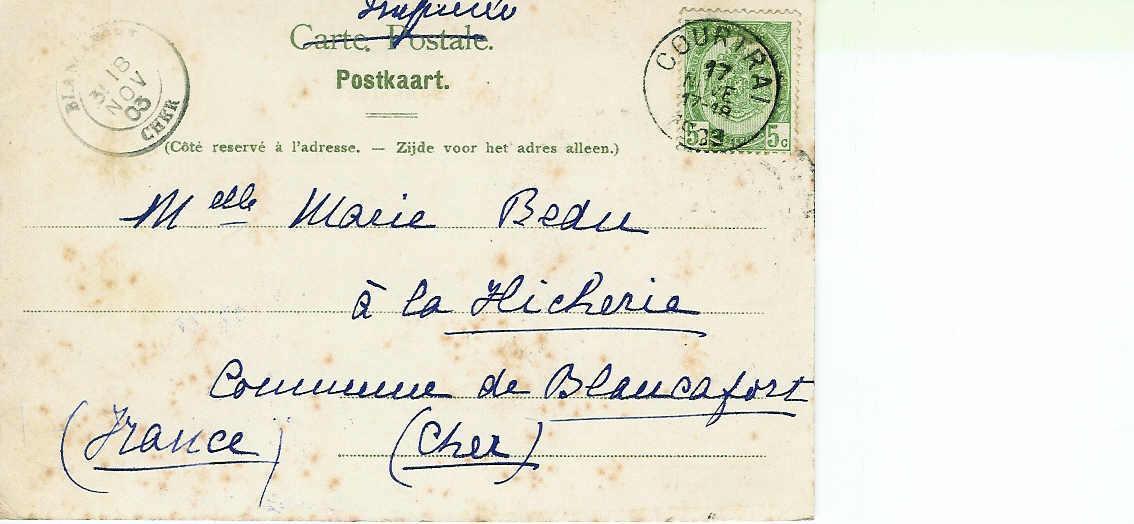 Imprimé
Carte Postale.
Postkaart.
(Côté reservé à l'adresse. — Zijde voor het adres alleen.)
COURTRAI
17
17-18
5 5c
18
NOV
03
CHER
Melle Marie Bedu
à la Hicherie
Commune de Blancafort
(France) (Cher)